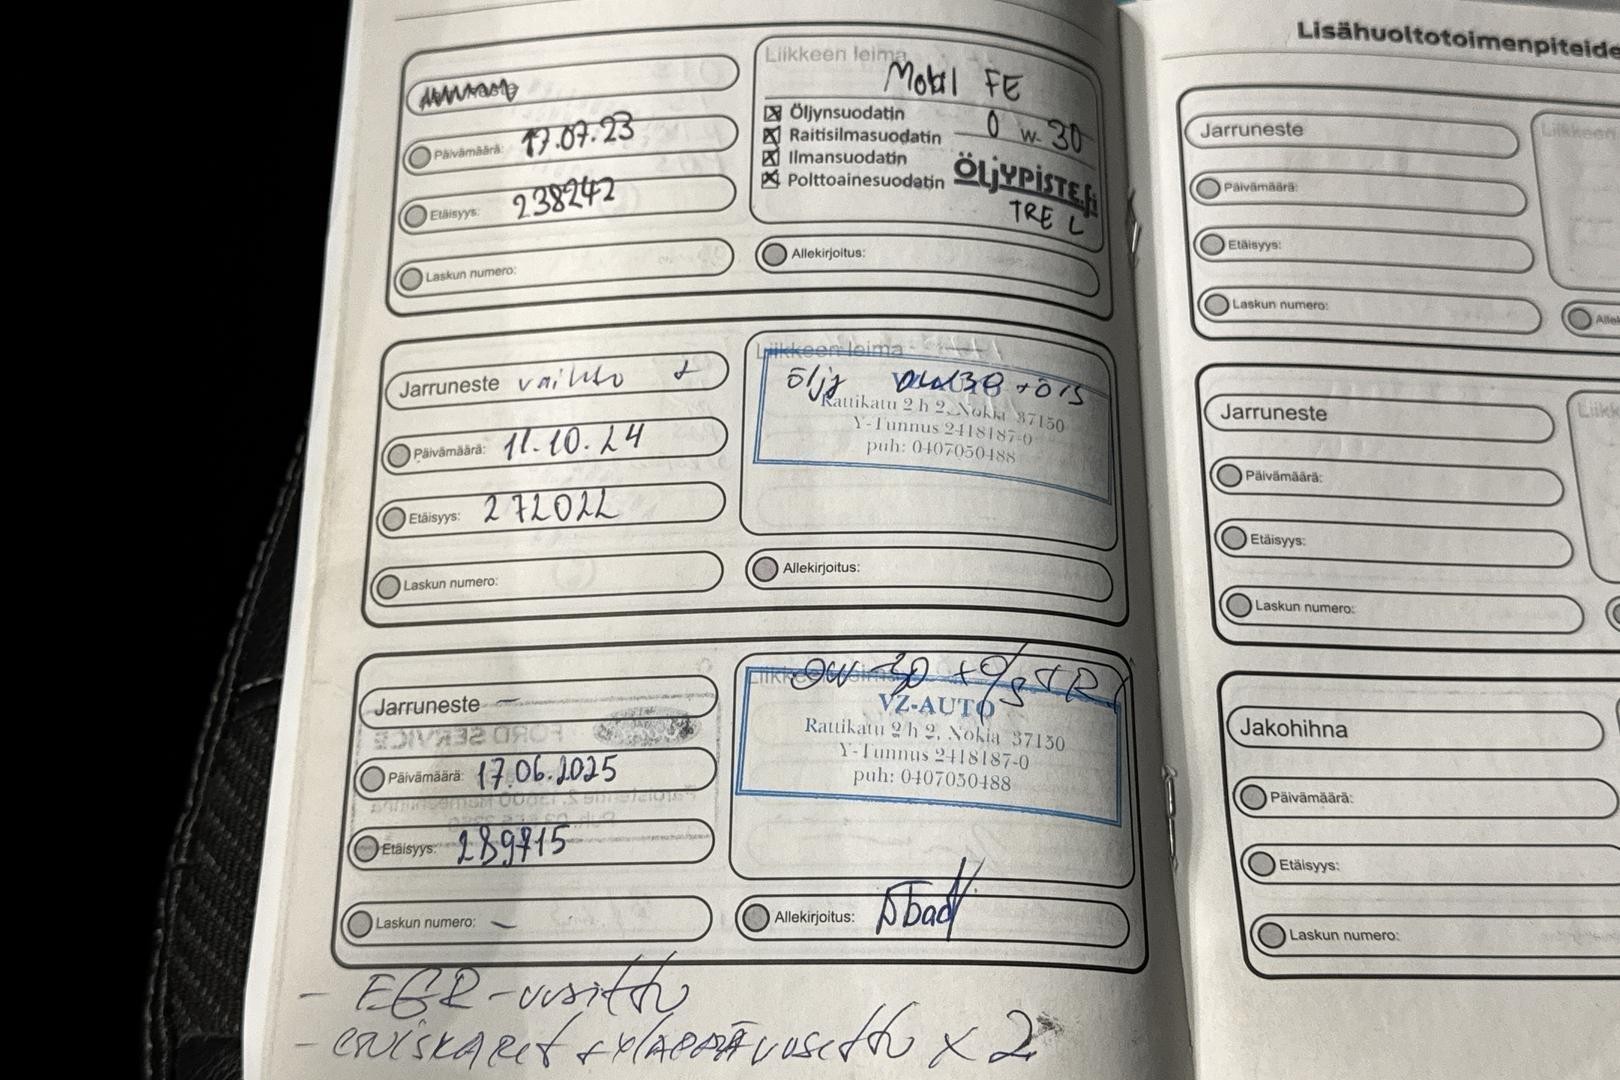 Liikkeen leima
Mobil FE
Päivämäärä: 17.07.23
Öljynsuodatin
Raitisilmasuodatin
0 w-30
Ilmansuodatin
Polttoainesuodatin
ÖLJYPISTE.fi
TRE L
Etäisyys: 238242
Laskun numero:
Allekirjoitus:
Jarruneste vaihto
Liikkeen leima
Öljy
Rattikatu 2 h 2, Nokia 37150
Y-Tunnus 2418187-0
puh: 0407050488
Päivämäärä: 11.10.24
Etäisyys: 272022
Laskun numero:
Allekirjoitus:
Jarruneste —
0W-30
VZ-AUTO
Rattikatu 2 h 2, Nokia 37150
Y-Tunnus 2418187-0
puh: 0407050488
FORD SERVICE
Päivämäärä: 17.06.2025
Etäisyys: 289715
Laskun numero: –
Allekirjoitus:
- EGR-uusittu
Lisähuoltotoimenpiteide
Jarruneste
Liikkeen
Päivämäärä:
Etäisyys:
Laskun numero:
Allek
Jarruneste
Liikk
Päivämäärä:
Etäisyys:
Laskun numero:
Jakohihna
Päivämäärä:
Etäisyys:
Laskun numero: